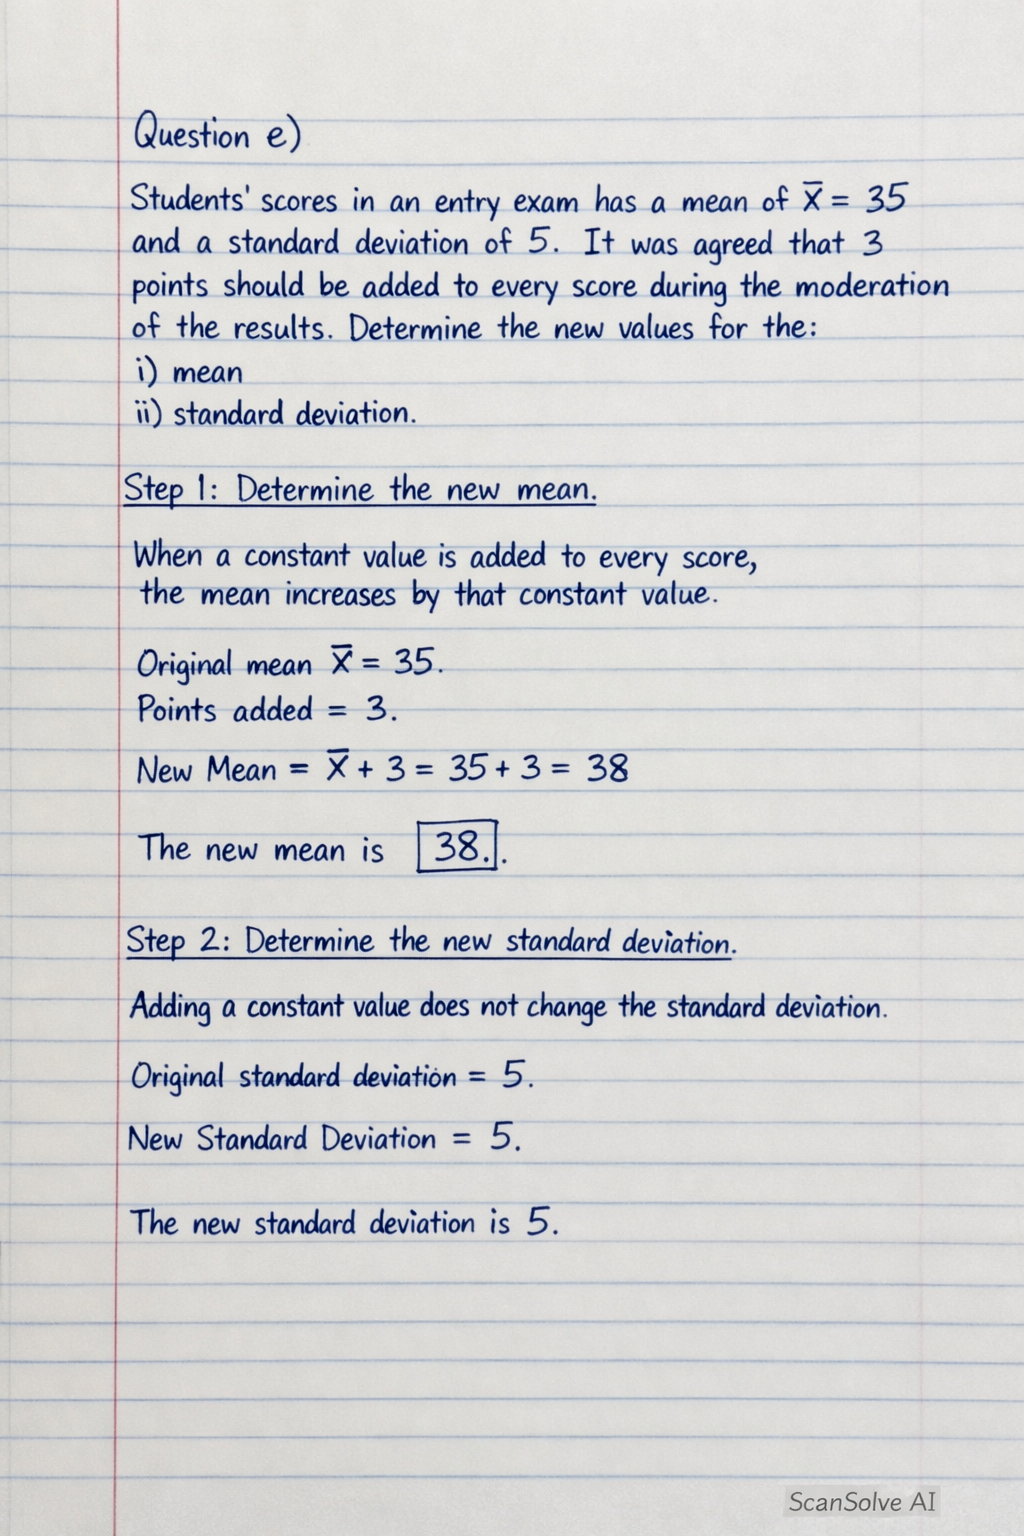 Question e)
Students' scores in an entry exam has a mean of x̄ = 35
and a standard deviation of 5. It was agreed that 3
points should be added to every score during the moderation
of the results. Determine the new values for the:
i) mean
ii) standard deviation.
Step 1: Determine the new mean.
When a constant value is added to every score,
the mean increases by that constant value.
Original mean x̄ = 35.
Points added = 3.
New Mean = x̄ + 3 = 35 + 3 = 38
The new mean is 38..
Step 2: Determine the new standard deviation.
Adding a constant value does not change the standard deviation.
Original standard deviation = 5.
New Standard Deviation = 5.
The new standard deviation is 5.
ScanSolve AI